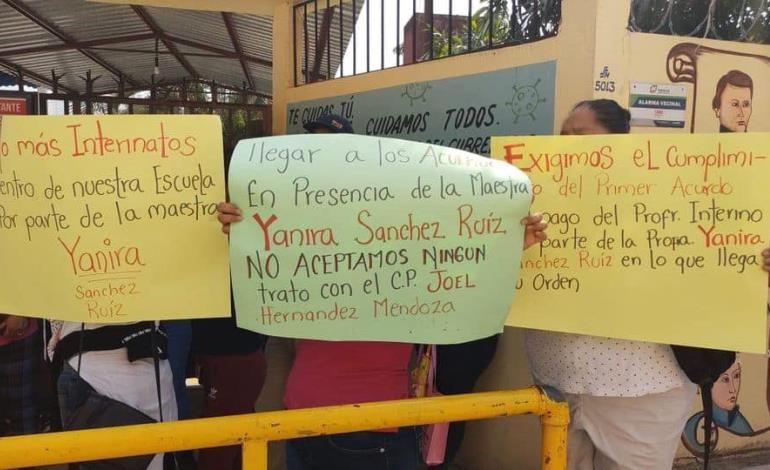 TE CUIDAS TÚ,
CUIDAMOS TODOS.
DEL CUBRE
5013
ALARMA VECINAL
más Interinatos
entro de nuestra Escuela
Por parte de la maestra
Yanira
Sanchez
Ruíz
llegar a los Acuerdos
En Presencia de la Maestra
Yanira Sanchez Ruíz
NO ACEPTAMOS NINGUN
trato con el C.P. JOEL
Hernandez Mendoza
Exigimos el Cumplimi-
del Primer Acuerdo
pago del Profr. Interino
parte de la Profa. Yanira
Sanchez Ruiz en lo que llega
Orden